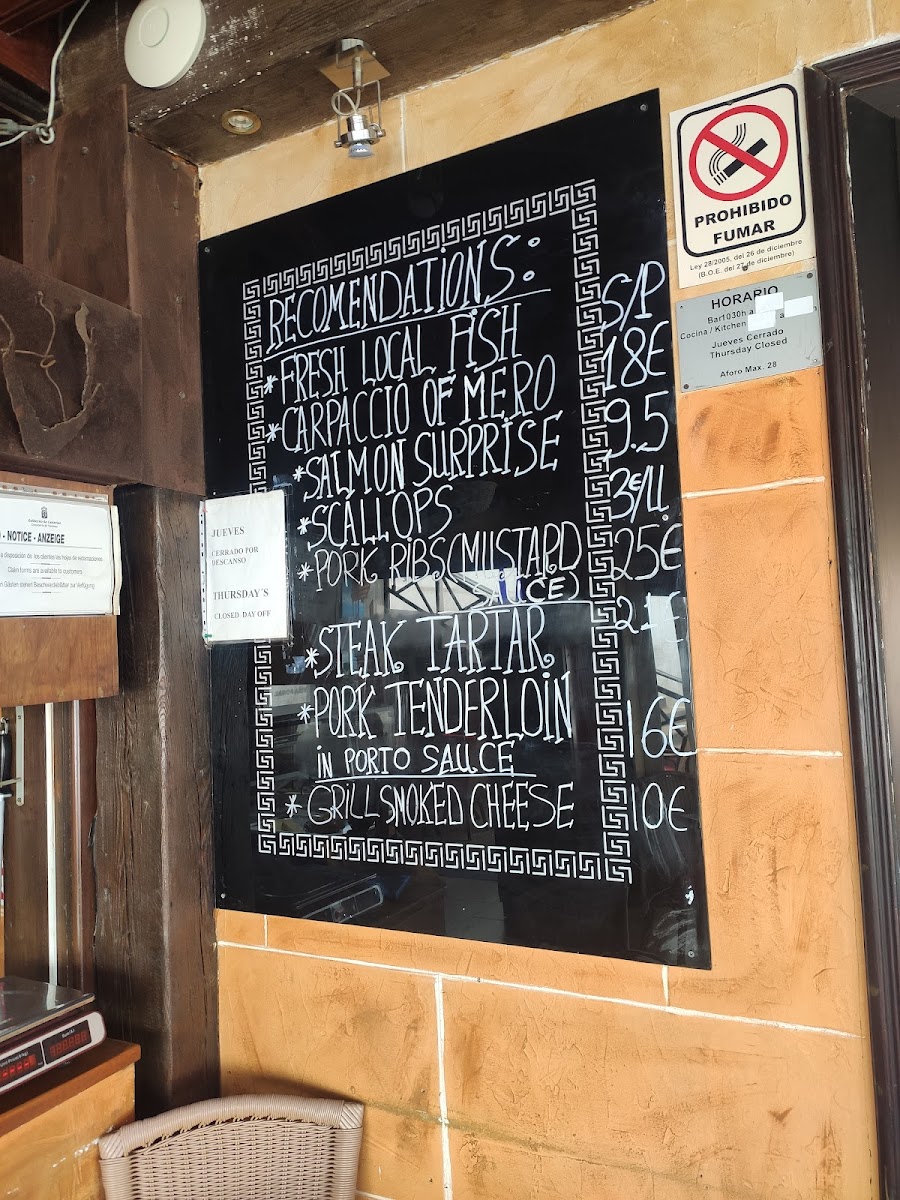 RECOMENDATIONS:
*FRESH LOCAL FISH S/P
*CARPACCIO OF MERO 18€
*SALMON SURPRISE 9.5
*SCALLOPS 3€/U
*PORK RIBS (MUSTARD 25€
SAUCE)
*STEAK TARTAR 21€
*PORK TENDERLOIN 16€
in PORTO SAUCE
*GRILL SMOKED CHEESE 10€
PROHIBIDO
FUMAR
Ley 28/2005, del 26 de diciembre
(B.O.E. del 27 de diciembre)
HORARIO
Bar1030h a
Cocina / Kitchen a
Jueves Cerrado
Thursday Closed
Aforo Max. 28
JUEVES
CERRADO POR
DESCANSO
THURSDAY´S
CLOSED DAY OFF
- NOTICE - ANZEIGE
a disposición de los clientes las hojas de reclamaciones
Claim forms are available to customers.
Gästen stehen Beschwerdeblätter zur Verfügung